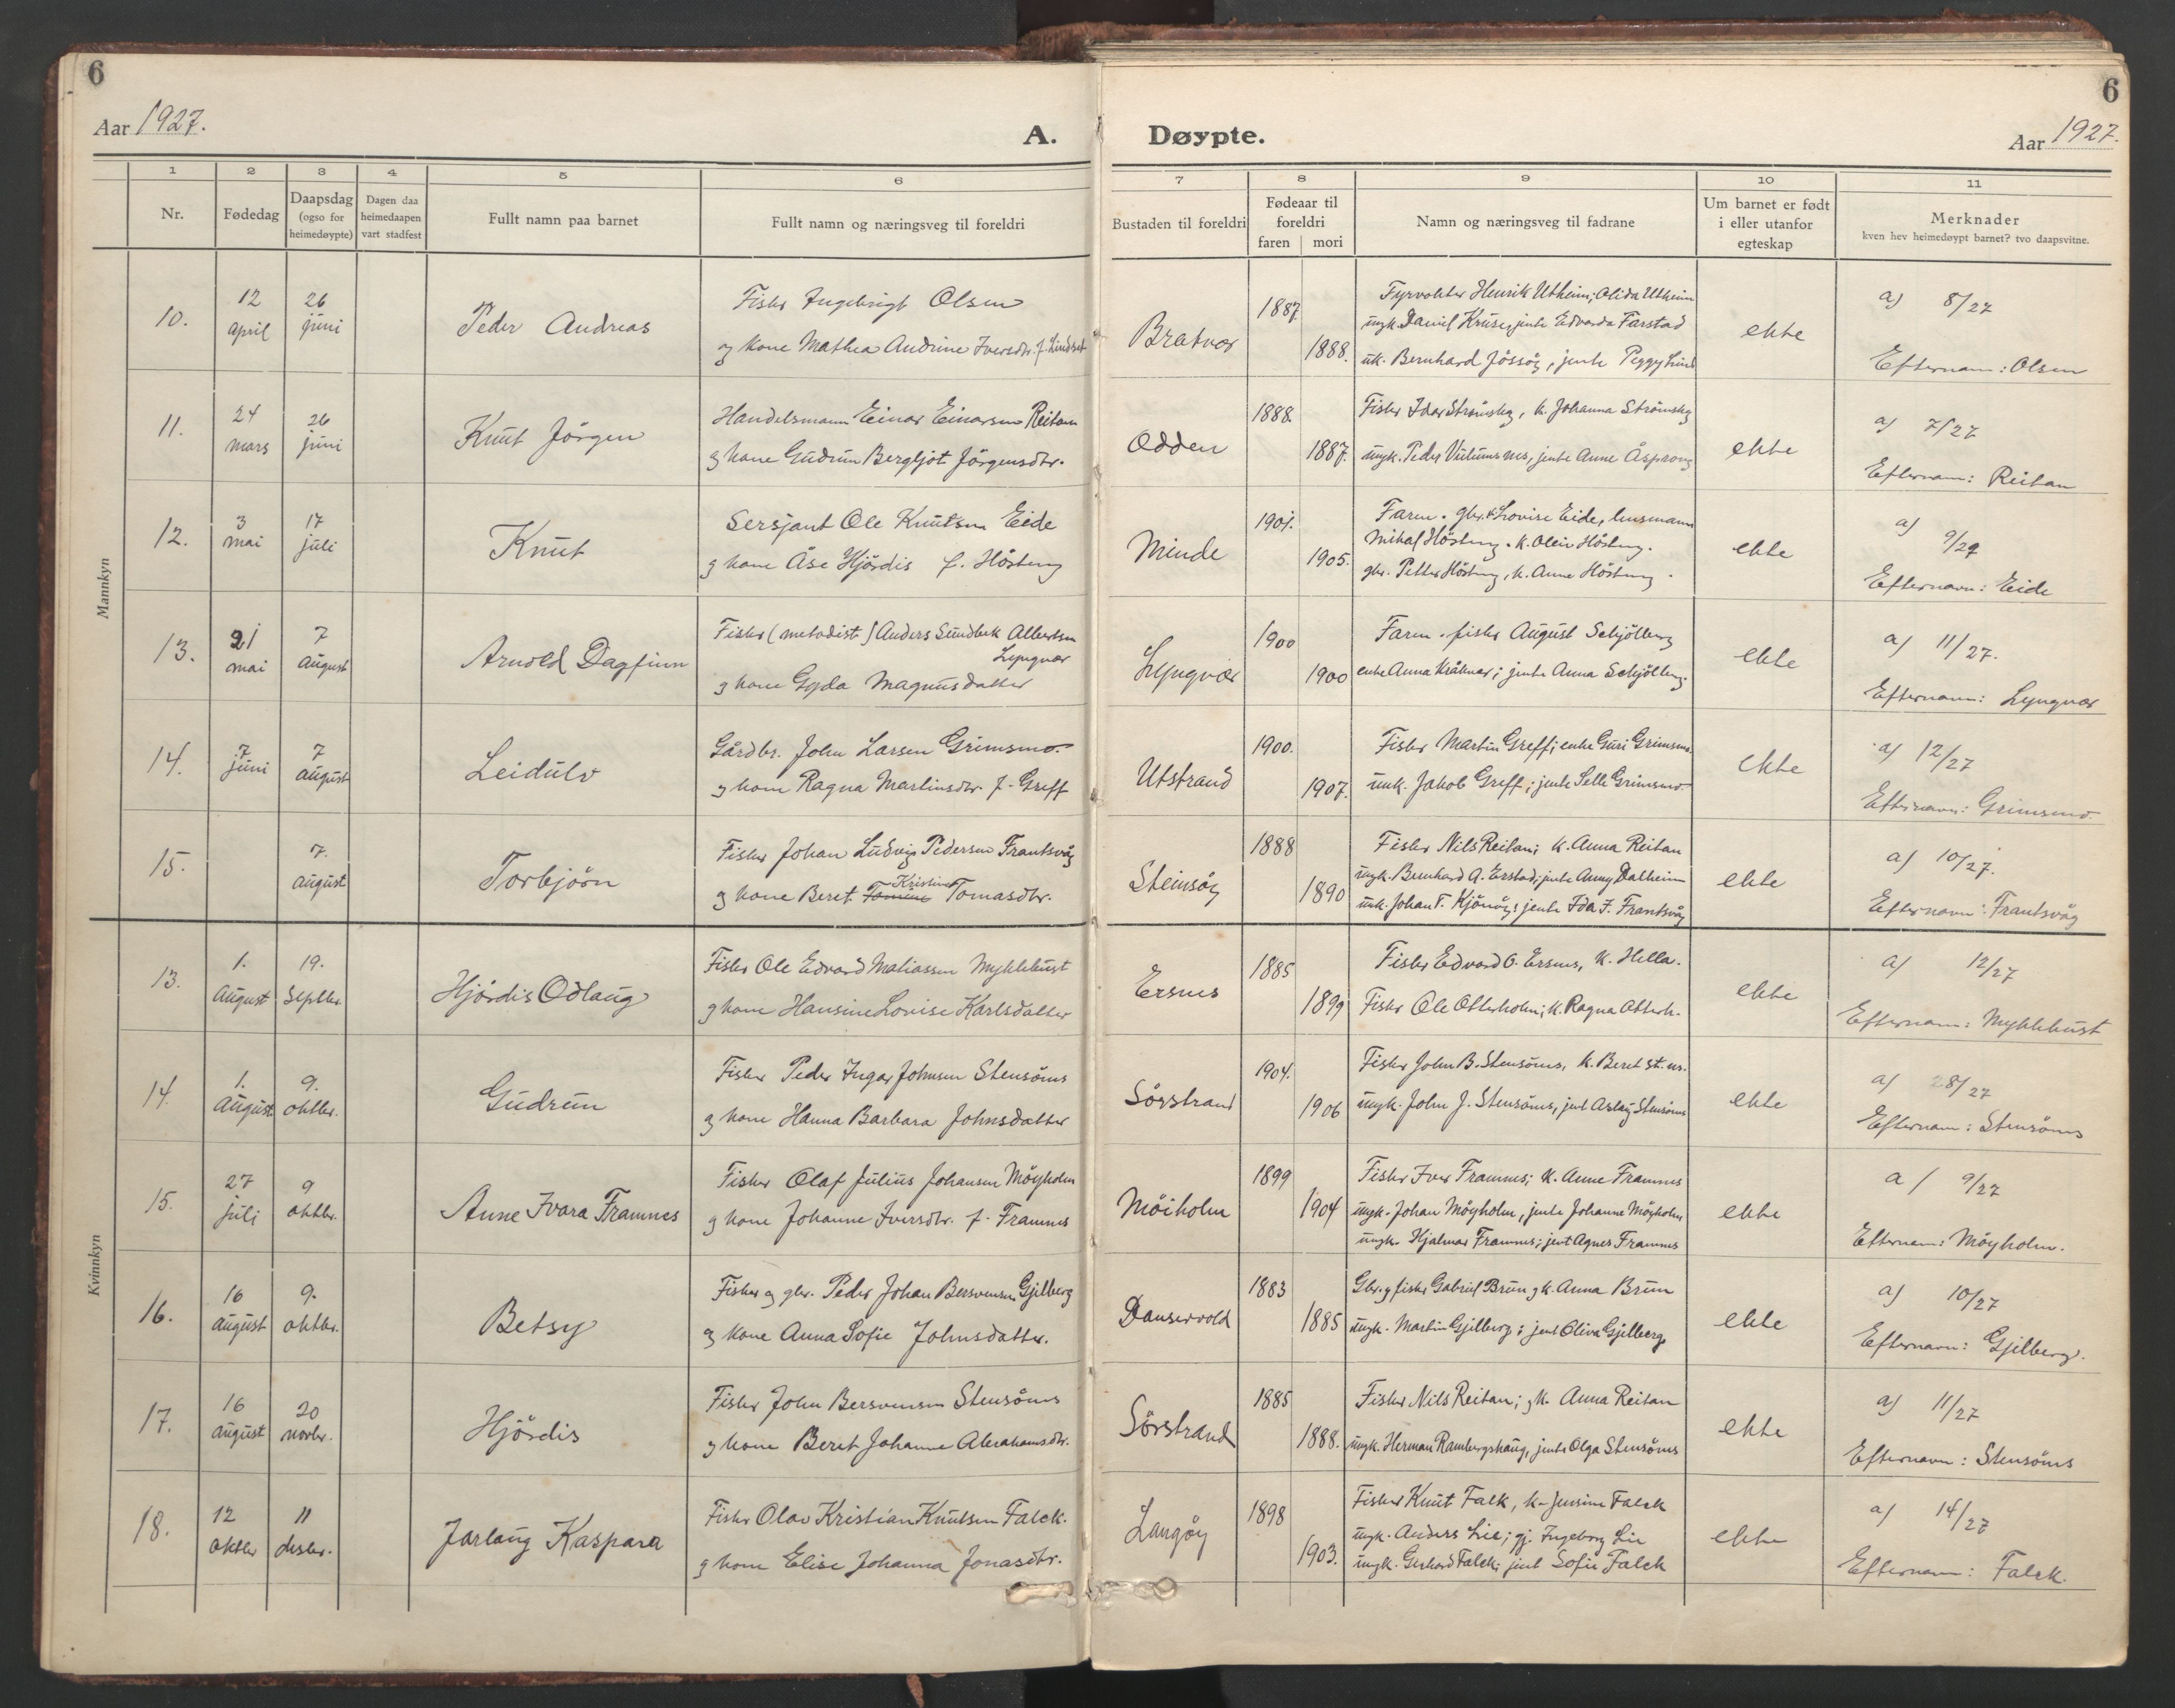 6
6
Aar 1927.
A. Døypte.
Aar 1927.
1 2 3 4 5 6 7 8 9 10 11
Nr.
Fødedag
Daapsdag
(ogso for
heimedøypte)
Dagen daa
heimedaapen
vart stadfest
Fullt namn paa barnet
Fullt namn og næringsveg til foreldri
Bustaden til foreldri
Fødeaar til
foreldri
faren mori
Namn og næringsveg til fadrane
Um barnet er født
i eller utanfor
egteskap
Merknader
kven hev heimedøypt barnet? tvo daapsvitne.
Mannkyn
10.
12
april
26
juni
Peder Andreas
Fisker Ingebrigt Olsen
og kone Mathea Andrine Iversdtr. f. Lindset
Bratvær
1887
1888.
Fyrvokter Henrik Utheim; Olida Utheim
ungk. Daniel Kruse, jente Edvarda Farstad
uk. Bernhard Jössöy, jente Peggy Lund
ekte
a) 8/27
Efternam: Olsen
11.
24
mars
26
juni
Knut Jörgen
Handelsmann Einar Einarsen Reitan
og kone Gudrun Bergljot Jörgensdtr.
Odden
1888.
1887.
Fisker Idar Strömsky, k. Johanna Strömsky
ungk. Peder , jente Anne Åsprong
ekte
a) 7/27
Efternam: Reitan
12.
3
mai
17
juli
Knut
Sersjant Ole Knutsen Eide
og kone Åse Hjördis f. Hösteng
Minde
1901.
1905.
Faren. gbr.k. Lovise Eide, lensmann
Mikal Hösteng. k. Olein Hösteng.
gbr. Petter Hösteng, k. Anne Hösteng.
ekte
a) 9/27
Efternavn: Eide
13.
21
mai
7
august
Arnold Dagfinn
Fisker (metodist) Anders Sundbek Albertsen
Lyngvær
og kone Gyda Magnusdatter
Lyngvær
1900
1900
Faren. fisker August Schjölberg
enke Anna Kråknes; jente Anna Schjölberg.
ekte
a) 11/27.
Efternavn: Lyngvær
14.
7
juni
7
august
Leidulv
Gårdbr. John Larsen Grimsmo
og kone Ragna Martinsdtr. f. Greff
Utstrand
1900.
1907.
Fisker Martin Greff; enke Guri Grimsmo
unk. Jakob Greff; jente Selle Grimsmo
ekte
a) 12/27
Efternavn: Grimsmo.
15.
7.
august
Torbjörn
Fisker Johan Ludvig Pedersen Frantsvåg
Kristine
og kone Beret Tomine Tomasdtr.
Steinsöy
1888
1890
Fisker Nils Reitan; k. Anna Reitan
ungk. Bernhard A. Erstad; jente Anny Dalheim
unk. Johan T. Kjönöy; jente Ida F. Frantsvåg
ekte
a) 10/27.
Efternavn: Frantsvåg
Kvinnkyn
13.
1.
August
19.
Septbr.
Hjördis Odlaug
Fisker Ole Edvard Matiassen Myklebust
og kone Hansine Lovise Karlsdatter
Ersnes
1885
1899
Fisker Edvard O. Ersnes, k. Hella.
Fisker Ole Otterholm; k. Ragna Otterh.
ekte
a) 12/27
Efternam: Myklebust
14.
1.
August
9.
oktbr.
Gudrun
Fisker Peder Ingar Johnsen Stensönes
og kone Hanna Barbara Johnsdatter
Sörstrand
1904.
1906
Fisker John B. Stensönes, k. Beret St.nes.
ungk. John J. Stensönes, jent Aslaug Stensönes
ekte
a) 28/27
Efternam: Stensönes
15.
27
juli
9
oktbr.
Anne Ivara Framnes
Fisker Olaf Julius Johansen Möyholm
og kone Johanne Iversdtr. f. Framnes
Möiholm
1899
1904
Fisker Iver Framnes; k. Anne Framnes
ungk. Johan Möyholm, jente Johanne Möyholm
ungk. Hjalmar Framnes; jent Agnes Framnes
ekte
a) 9/27
Efternam: Möyholm.
16.
16
august
9.
oktbr.
Betsy
Fisker og gbr. Peder Johan Bersvensen Gjelberg
og kone Anna Sofie Johnsdatter.
Dansvold
1883
1885
Gbr. og fisker Gabriel Brun og k. Anna Brun
ungk. Martin Gjelberg; jent Oliva Gjelberg
ekte
a) 10/27
Efternavn: Gjelberg.
17.
16
august
20
novbr.
Hjördis
Fisker John Bersvensen Stensönes
og kone Beret Johanne Abrahamsdtr.
Sörstrand
1885
1888.
Fisker Nils Reitan; og k. Anna Reitan
ungk. Herman Rambergshaug, jente Olga Stensönes
ekte
a) 11/27
Efternavn: Stensönes
18.
12
oktbr
11
desbr.
Jarlaug Kaspara
Fisker Olav Kristian Knutsen Falck.
og kone Elise Johanna Jonasdtr.
Langöy
1898
1903.
Fisker Knut Falk, k. Jensine Falck
ungk. Anders Lie; gj. Ingeborg Lie
ungk. Gerhard Falck; jent Sofie Falck
ekte
a) 14/27
Efternam: Falck.